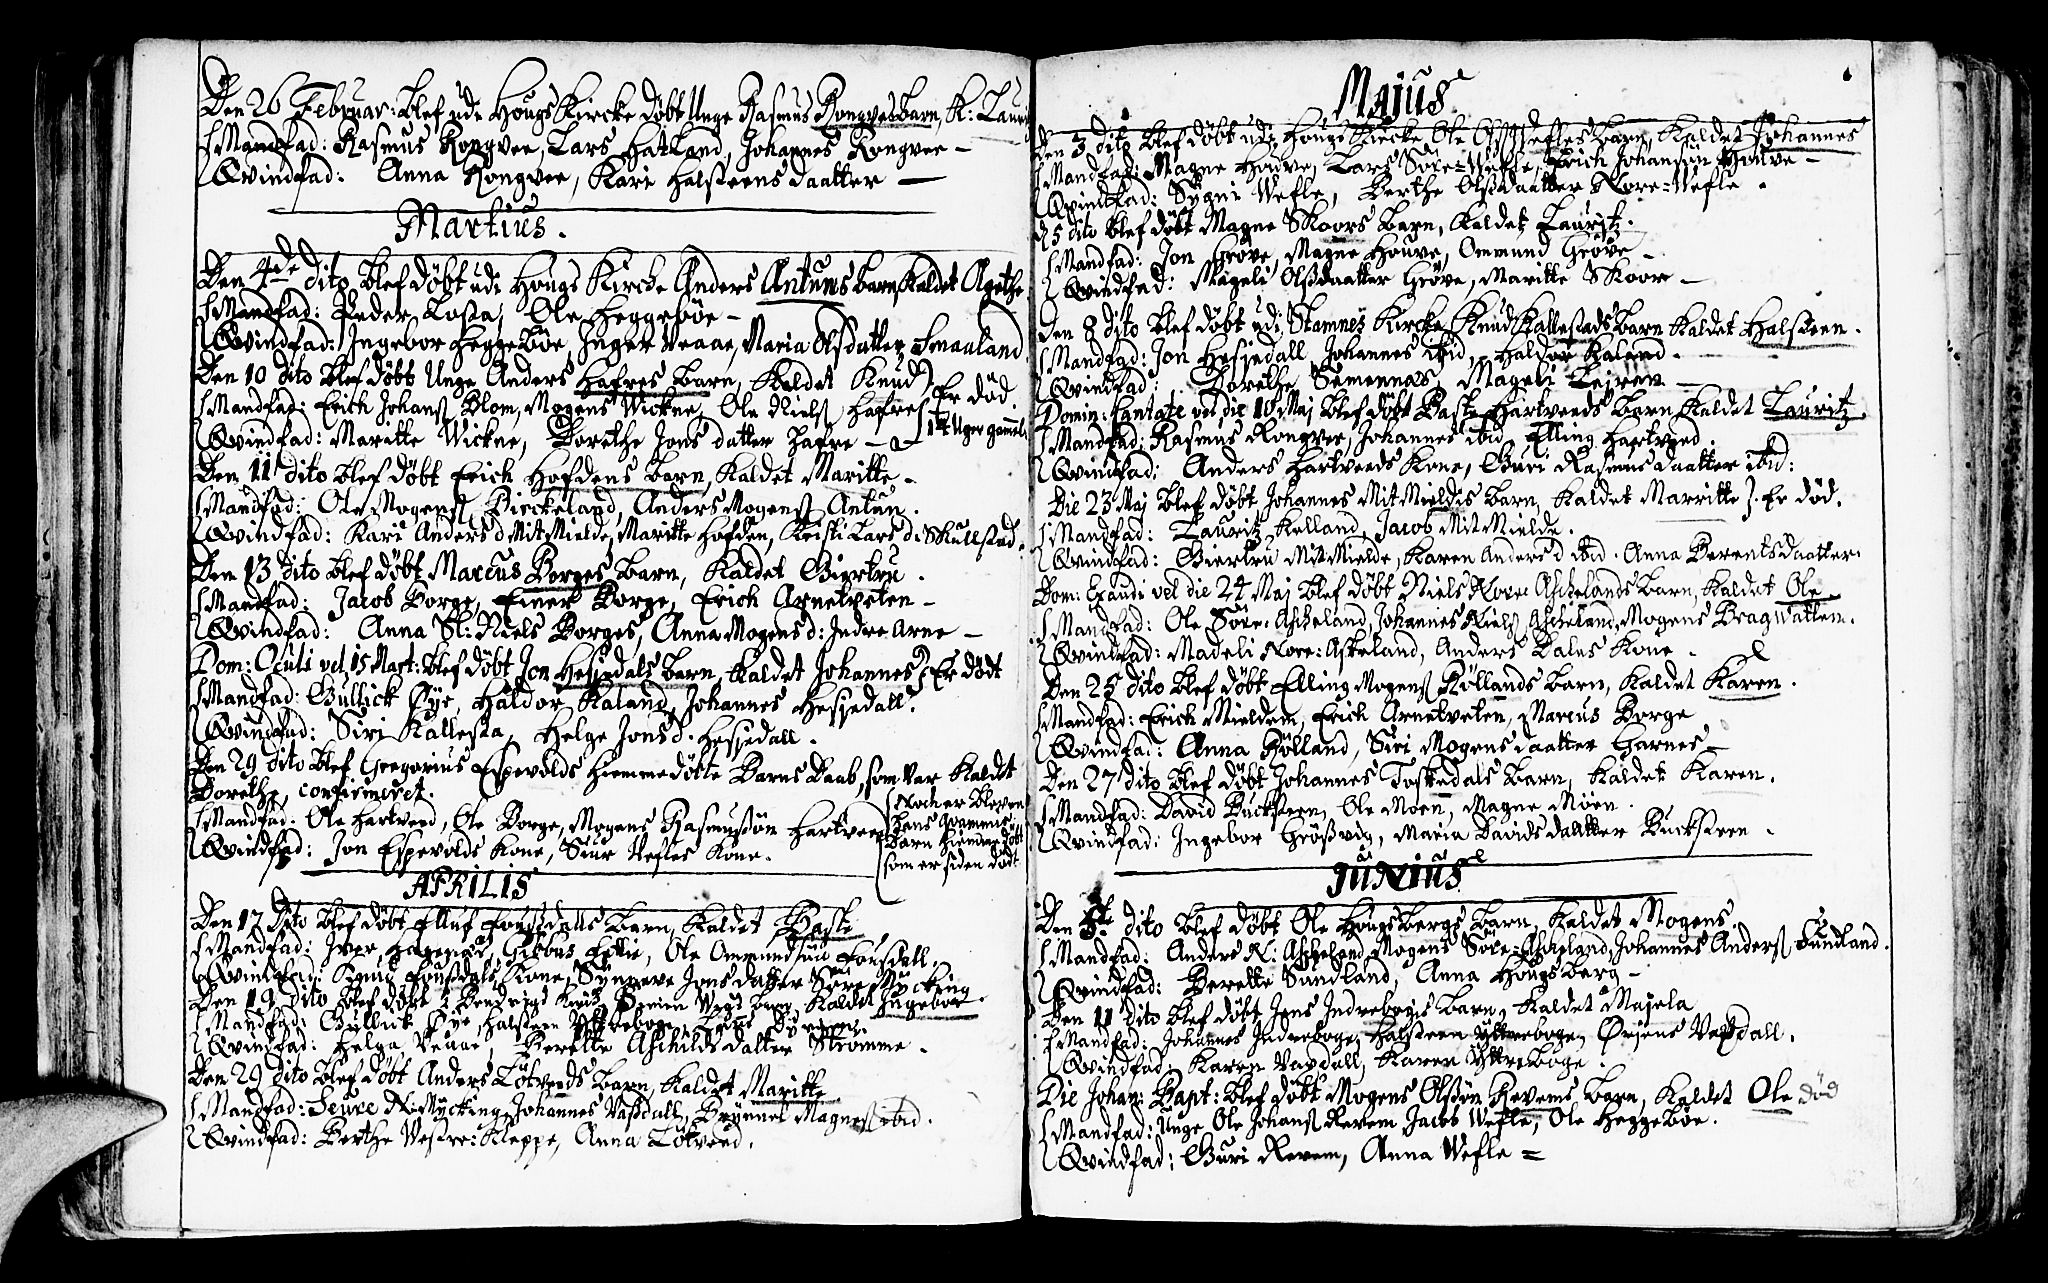 Den 26 Februar: blef udi Hougs Kircke døbt Unge Rasmus Rongves barn, K: Laur
Mandfad: Rasmus Rongvee, Lars Hatland, Johannes Rongvee —
Qvindfad: Anna Rongvee, Kari Halsteens daatter —
Martius.
Den 4de dito blef døbt udi Hougs Kircke Anders Antuns barn Kaldet Agethe
Mandfad: Peder Losta, Ole Heggebøe —
Qvindfad: Ingebor Heggebøe, Inger Veaae, Maria Olsdatter Smaaland
Den 10 dito blef døbt Unge Anders Hafres barn, Kaldet Knud } Er død
Mandfad: Erich Johans Blom, Mogens Wickne, Ole Niels Hafre } 14 Uger gamel
Qvindfad: Maritte Wickne, Dorethe Jons datter Hafre —
Den 11 dito blef døbt Erich Hofdens barn, Kaldet Maritte —
Mandfad: Ole Mogens Birckeland, Anders Mogens Antun.
Qvindfad: Kari Anders d MitMielde, Maritte Hofden, Kristi Lars d: Skulstad.
Den 13 dito blef døbt Marcus Borges barn, Kaldet Giertru.
Mandfad: Jacob Borge, Einer Borge, Erich Arnetveten —
Qvindfad: Anna Sl: Niels Borges, Anna Mogens d: Indre Arne —
Dom: Oculi vel, 15 Mart: blef døbt Jon Hesjedals barn, Kaldet Johannes } Er dødt
Mandfad: Gullick Øye, Haldor Kaland, Johannes Hesjedall.
Qvindfad: Siri Kallesta, Helge Jons d. Hesjedall.
Den 29 dito blef Gregorius Espevolds hiemmedøbte Barns Daab, som var Kaldet
Dorethe, confirmeret.
Mandfad: Ole Hartveed, Ole Borge, Mogens Rasmussøn Hartveed
Qvindfad: Jon Espevolds Kone, Siur Nefles Kone.
Noch er bleven
Hans Qvammis
Barn hiemme døbt
som er siden dødt
APRILIS
Den 17 dito blef døbt Elluf Fousdalls Barn, Kaldet Baste
Mandfad: Iver, Gibbus, Ole Omundsøn Fousdall.
Qvindfad: Knud Fousdals Kone, Synneve Jons datter Søre Mycking
Den 19 dito blef døbt Barn, Kaldet Ingebor.
Mandfad: Gullick Øye, Halsteen Yttreboge,
Qvindfad: Helga Veaae, Berette Aschilds datter Strømme.
Den 29 dito blef døbt Anders Løtveeds barn, Kaldet Maritte
Mandfad: Seure N: Mycking, Johannes Vassdall, Brynnel Magnes ibid.
Qvindfad: Berthe Vestre: Kleppe, Anna Løtveed.
Majus
Den 3 dito blef døbt udi Hougs Kircke Ole barn, Kaldet Johannes
Mandfad: Magne Houve, Lars Søre=Nefle, Erich Johansøn Houve —
Qvindfad: Sygni Nefle, Berthe Olsdaatter Nore=Nefle.
D 5 dito blef døbt Magne Skoors barn, Kaldet Lauritz.
Mandfad: Jon Grøve, Magne Houve, Ommund Grøve —
Qvindfad: Mageli Olsdaatter Grøve, Maritte Skoor —
Den 8 dito blef døbt udi Stamnes Kircke Knud Kallestads barn Kaldet Halsteen.
Mandfad: Jon Hesjedall, Johannes ibid, Haldor Kaland.
Qvindfad: Dorethe Semennas, Mageli Leiren —
Domin: Cantate vel die 10 Maj blef døbt Baste Hartveeds barn Kaldet Lauritz.
Mandfad: Rasmus Rongvee, Johannes ibid, Elling Hartveed.
Qvindfad: Anders Hartveeds Kone, Guri Rasmus daatter ibid:
Die 23 Maj blef døbt Johannes MitMieldes barn, Kaldet Marritte }. Er død.
Mandfad: Lauritz Kelland, Jacob MitMielde.
Qvindfad: Giertru MitMielde, Karen Anders d ibid. Anna Berentsdaatter.
Dom: Exaudi vel die 24 Maj blef døbt Niels Nore Aschelands barn, Kaldet Ole
Mandfad: Ole Søre: Ascheland, Johannes Niels Ascheland, Mogens Bragvatten.
Qvindfad: Madeli Nore: Askeland, Anders Dales Kone —
Den 25 dito blef døbt Elling Mogens Røllands barn, Kaldet Karen.
Mandfad: Erich Mieldem, Erich Arnetveten, Marcus Borge
Qvindfad: Anna Rølland, Siri Mogens daatter Garnes —
Den 27 dito blef døbt Johannes Toskedals barn, Kaldet Karen.
Mandfad: David Bucksteen, Ole Moen, Magne Moen.
Qvindfad: Ingebor Grøsvig, Maria Davids daatter Bucksteen.
JUNIUS
Den 5te dito blef døbt Ole Hougsbergs barn, Kaldet Mogens
Mandfad: Anders N: Ascheland, Mogens Søre=Ascheland, Johannes Anders Sundland.
Qvindfad: Berette Sundland, Anna Hougsberg —
Den 11 dito blef døbt Jens Indreboges barn, Kaldet Majela
Mandfad: Johannes Indreboge, Halsteen Yttreboge, Ørjens Vaxdall.
Qvindfad: Karen Vaxdall, Karen Yttreboge.
Die Johan: Bapt: blef døbt Mogens Olssøn Revems barn, Kaldet Ole død
Mandfad: Unge Ole Johans Revem, Jacob Nefle, Ole Heggebøe.
Qvindfad: Guri Revem, Anna Nefle =